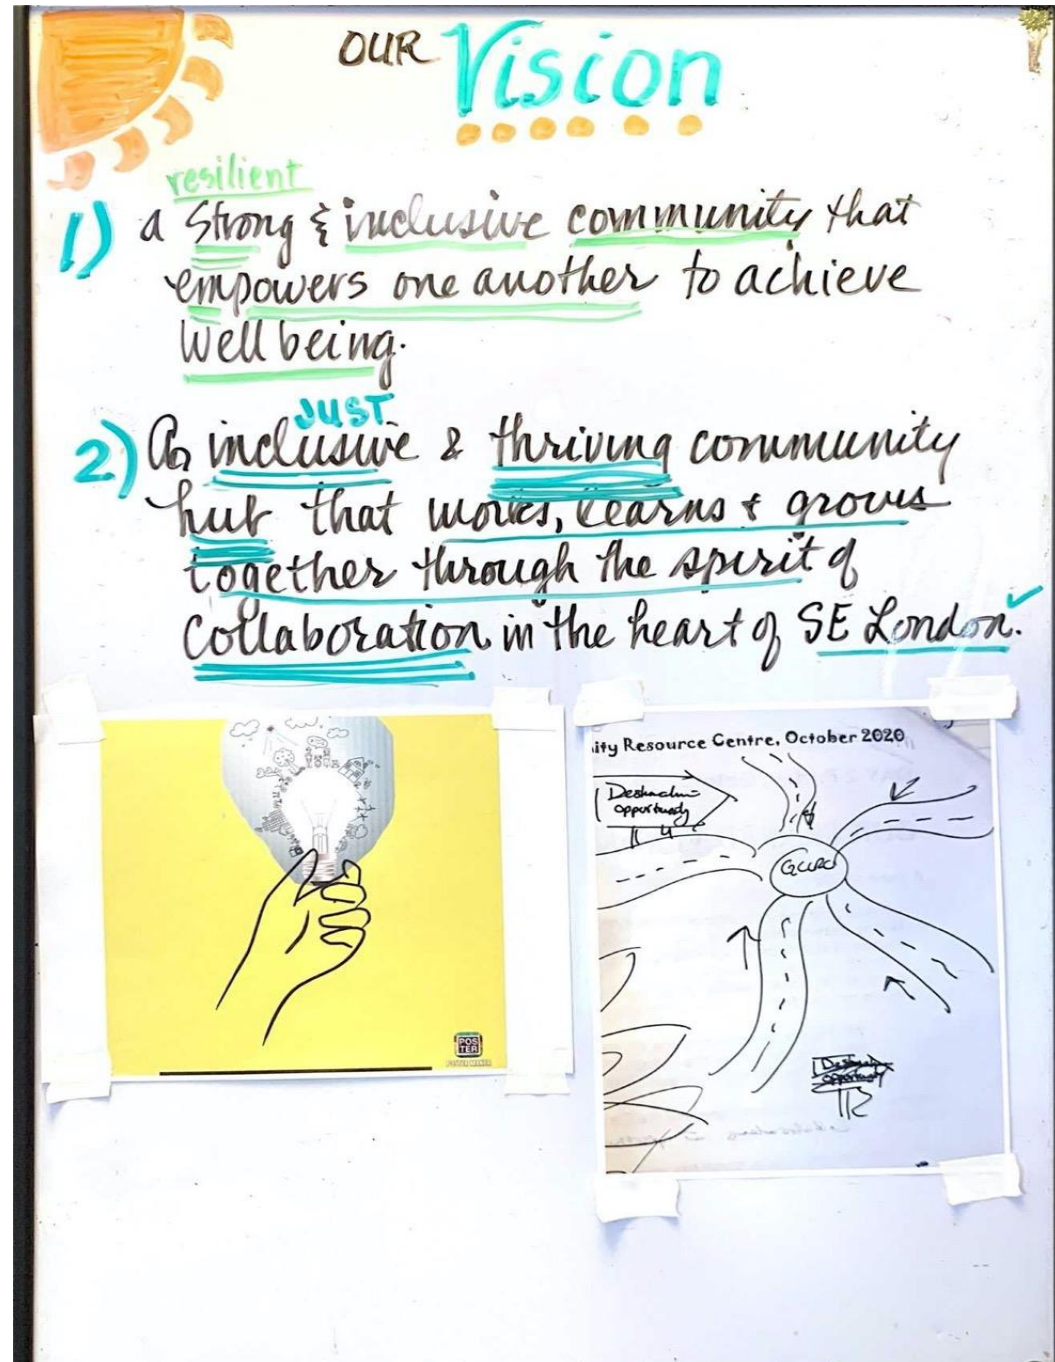 OUR Vision
resilient
1) a Strong & inclusive community that
empowers one another to achieve
Well being.
JUST
2) An inclusive & thriving community
hub that works, learns & grows
together through the spirit of
Collaboration in the heart of SE London.
ity Resource Centre, October 2020
opportunity
POS
TER
POSTER MAKER